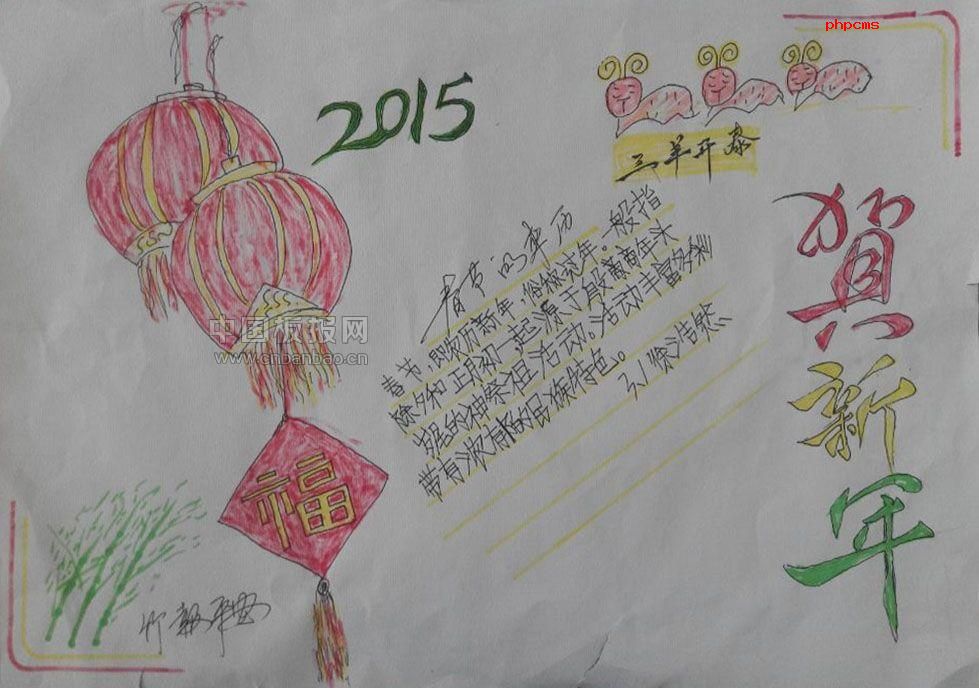 phpcms
2015
三羊开泰
春节的来历
春节,即农历新年,俗称过年。一般指
除夕和正月初一起源于殷商时年头
岁尾的神祭祖活动。活动丰富多彩
带有浓郁的民族特色。
福
贺新年
竹报平安
中国板报网
www.cnbanbao.cn